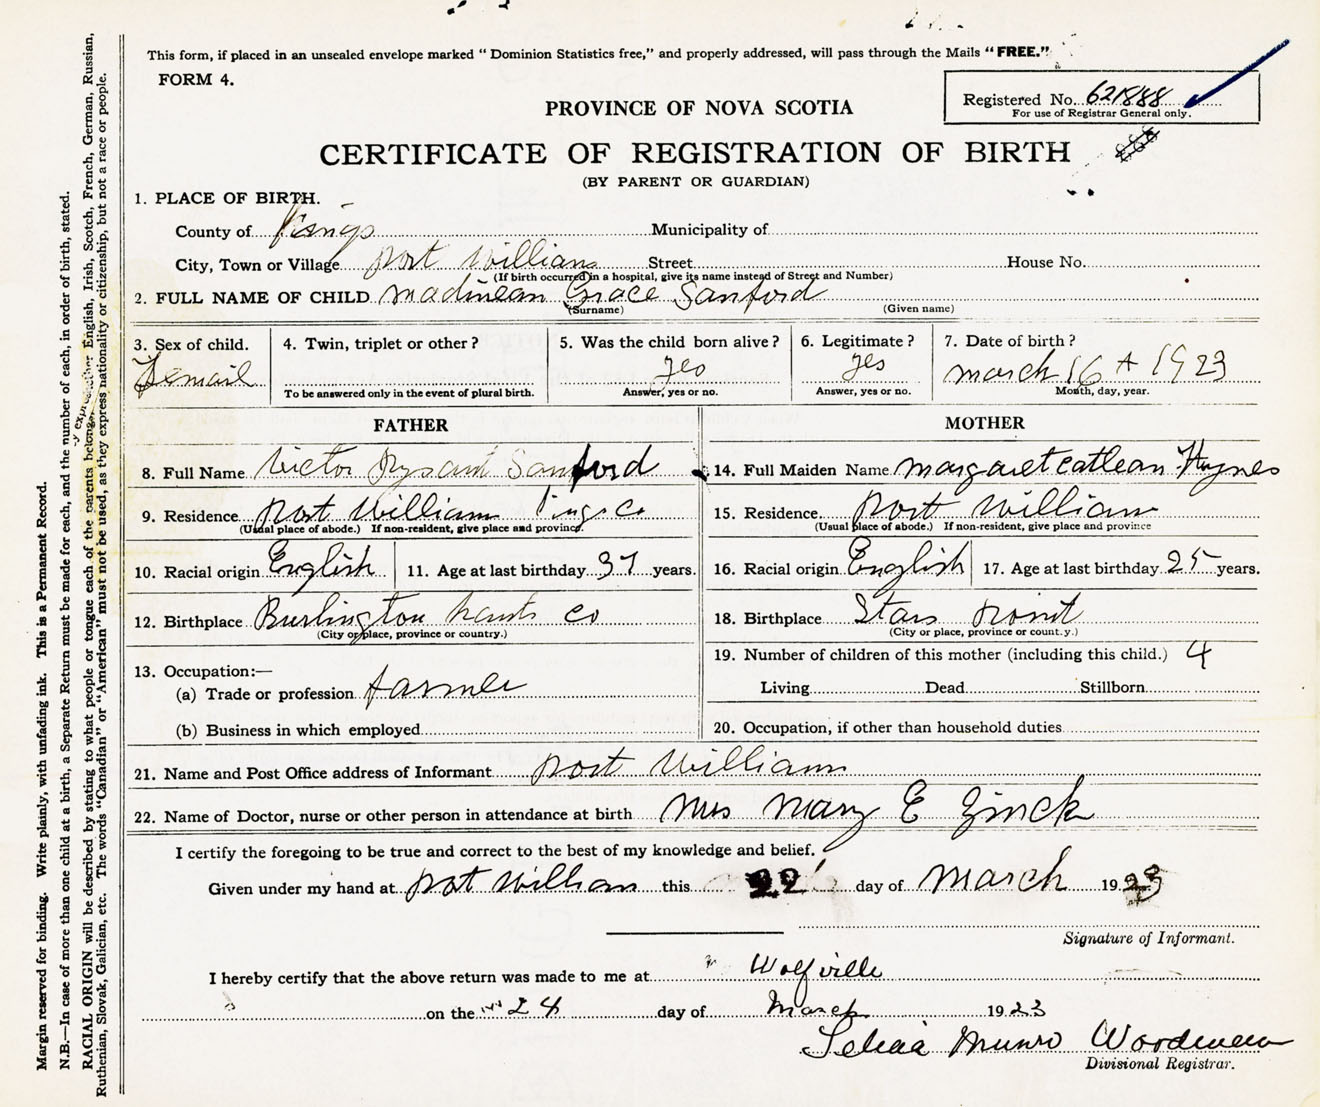 This form, if placed in an unsealed envelope marked “Dominion Statistics free,” and properly addressed, will pass through the Mails “FREE.”
FORM 4.
Registered No. 621888
For use of Registrar General only.
PROVINCE OF NOVA SCOTIA
CERTIFICATE OF REGISTRATION OF BIRTH
(BY PARENT OR GUARDIAN)
1. PLACE OF BIRTH.
County of Kings Municipality of
City, Town or Village port william Street House No.
(If birth occurred in a hospital, give its name instead of Street and Number)
2. FULL NAME OF CHILD madinean Grace Sanford
(Surname) (Given name)
3. Sex of child. 4. Twin, triplet or other? 5. Was the child born alive? 6. Legitimate? 7. Date of birth?
Femail yes yes march 16 1923
To be answered only in the event of plural birth. Answer, yes or no. Answer, yes or no. Month, day, year.
FATHER MOTHER
8. Full Name Victor Sanford 14. Full Maiden Name margaret catlean
9. Residence port william kings co 15. Residence port william
(Usual place of abode.) If non-resident, give place and province. (Usual place of abode.) If non-resident, give place and province
10. Racial origin English 11. Age at last birthday 37 years. 16. Racial origin English 17. Age at last birthday 25 years.
12. Birthplace Burlington hants co 18. Birthplace Stars point
(City or place, province or country.) (City or place, province or county.)
13. Occupation:— 19. Number of children of this mother (including this child.) 4
(a) Trade or profession farmer Living Dead Stillborn
(b) Business in which employed 20. Occupation, if other than household duties
21. Name and Post Office address of Informant port william
22. Name of Doctor, nurse or other person in attendance at birth mrs mary E Zinck
I certify the foregoing to be true and correct to the best of my knowledge and belief.
Given under my hand at port william this 22 day of march 1923
Signature of Informant.
I hereby certify that the above return was made to me at Wolfville
on the 24 day of March 1923
Selina Munro Woodman
Divisional Registrar.
Margin reserved for binding. Write plainly, with unfading ink. This is a Permanent Record.
N.B.—In case of more than one child at a birth, a Separate Return must be made for each, and the number of each, in order of birth, stated.
RACIAL ORIGIN will be described by stating to what people or tongue each of the parents belongs, whether English, Irish, Scotch, French, German, Russian,
Ruthenian, Slovak, Galician, etc. The words “Canadian” or “American” must not be used, as they express nationality or citizenship, but not a race or people.